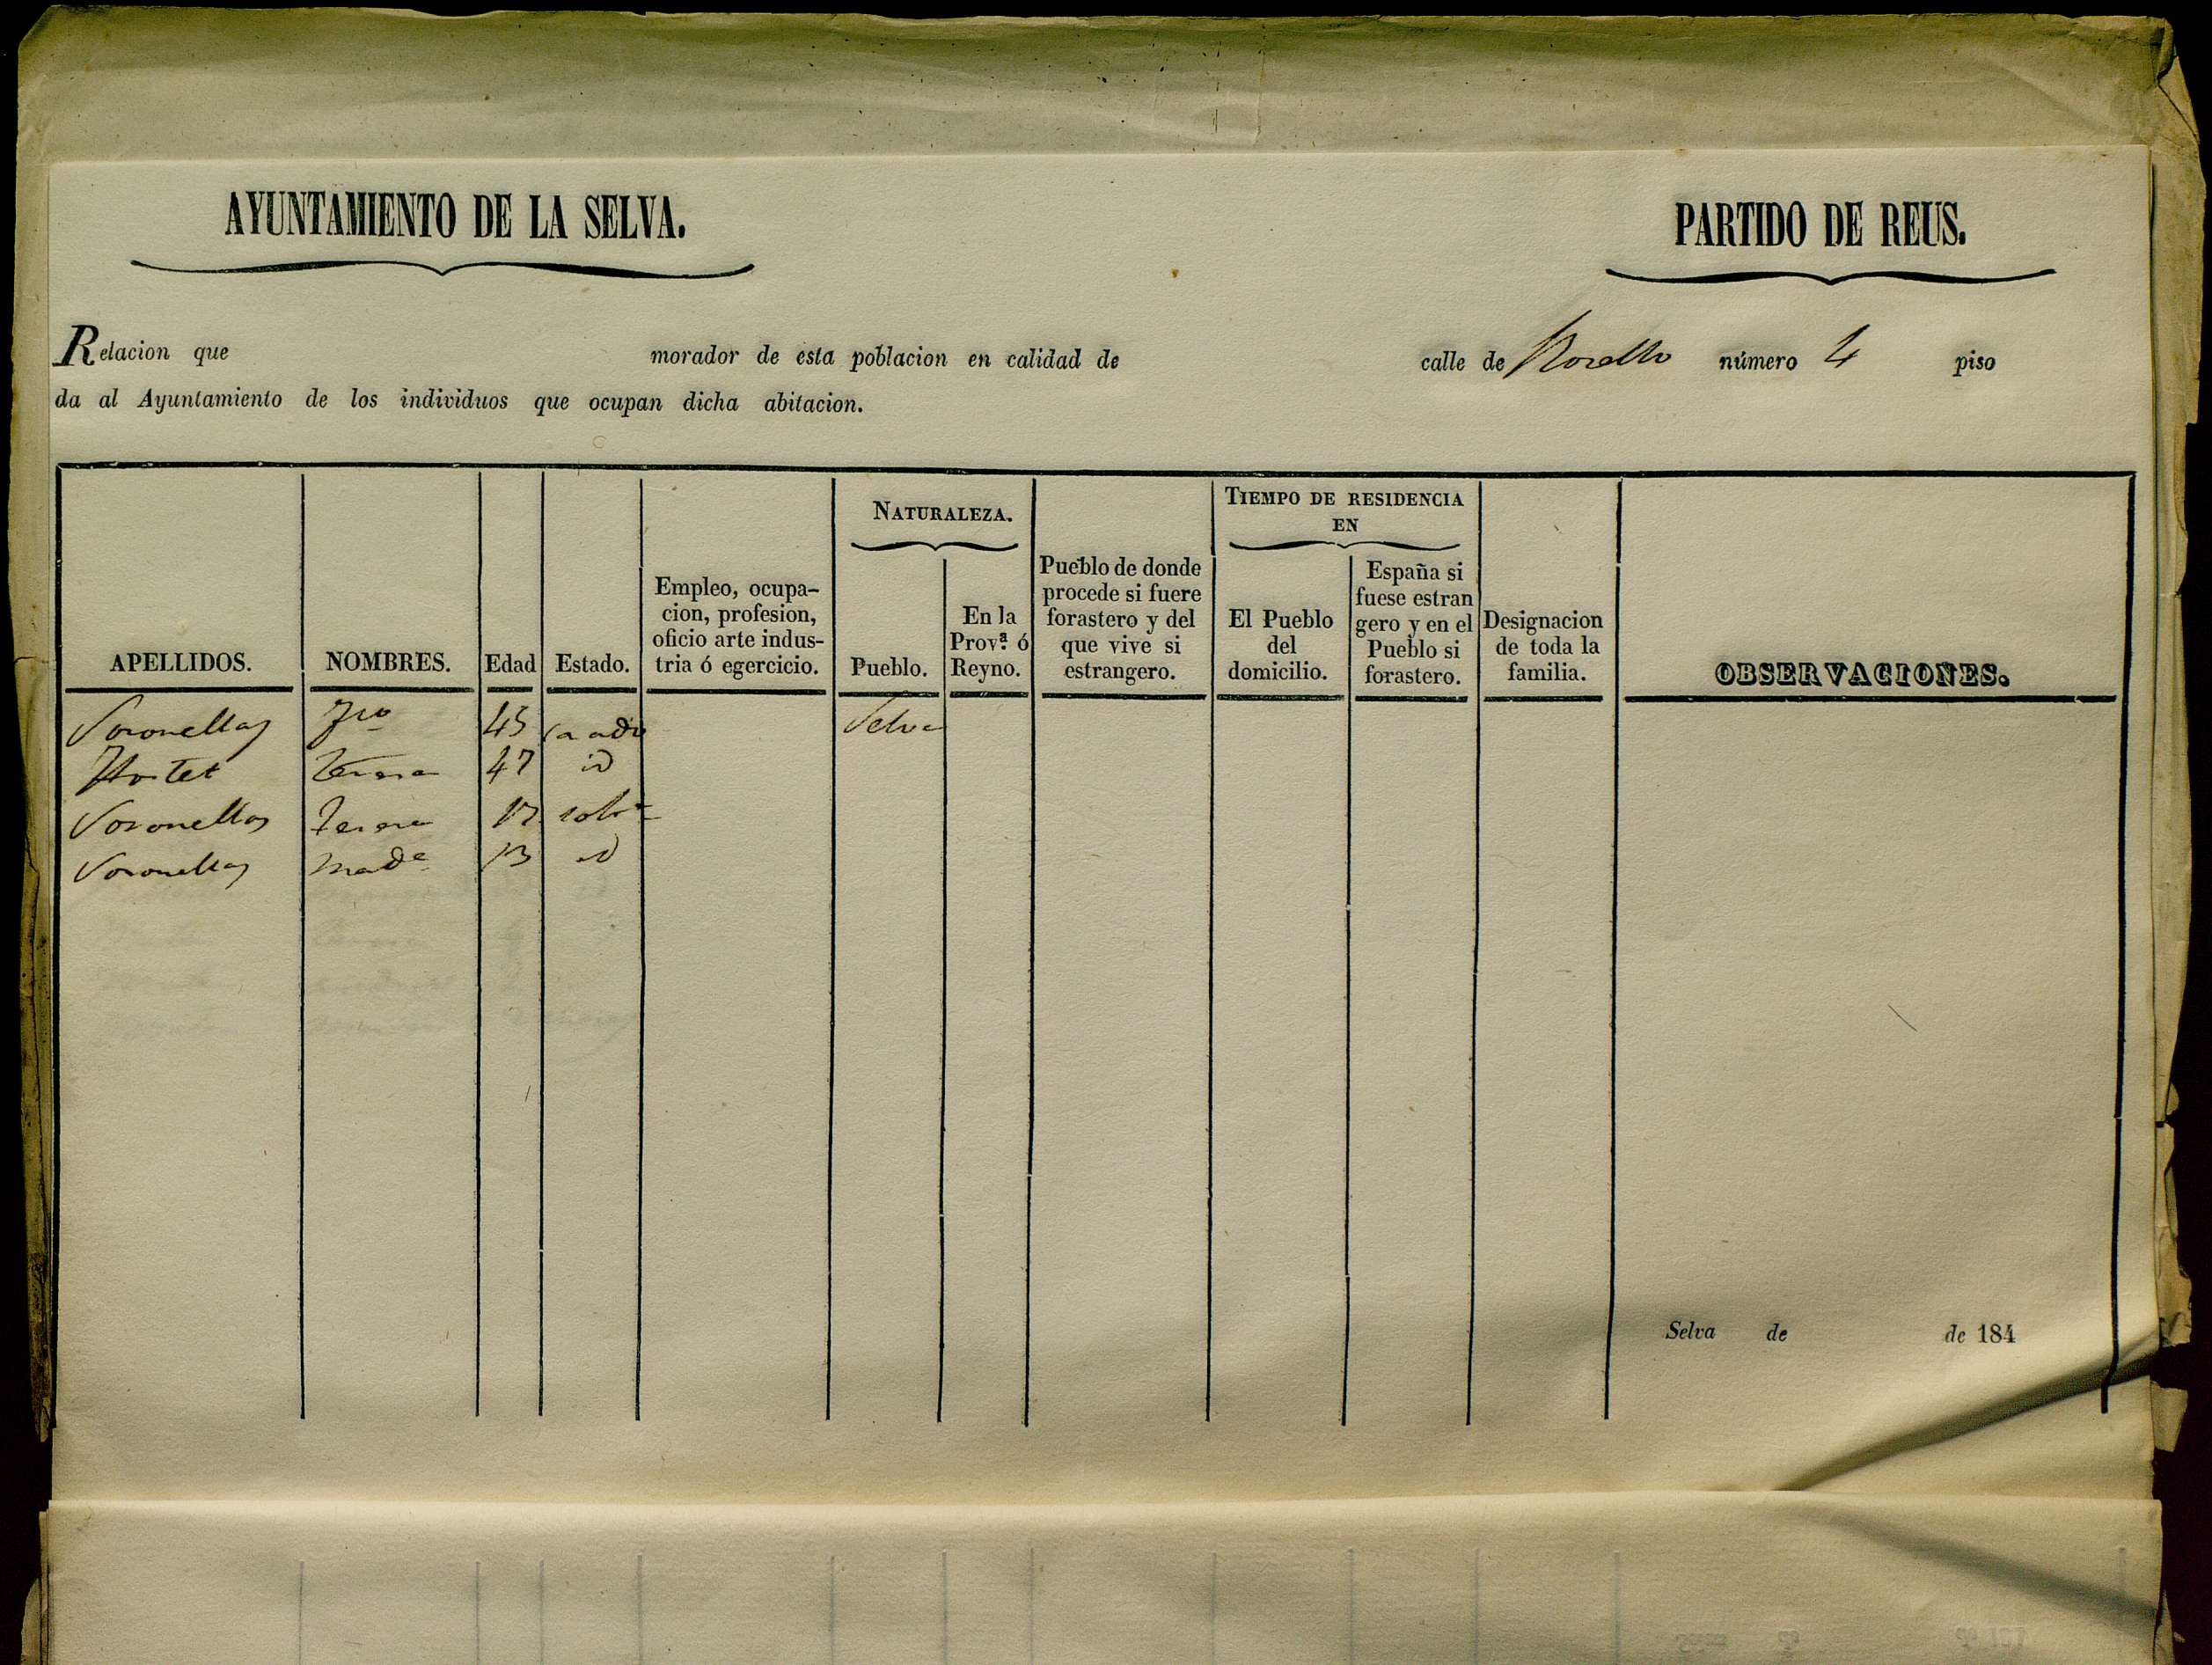 AYUNTAMIENTO DE LA SELVA.
PARTIDO DE REUS.
Relacion que morador de esta poblacion en calidad de calle de número 4 piso
da al Ayuntamiento de los individuos que ocupan dicha abitacion.
APELLIDOS.
NOMBRES.
Edad
Estado.
Empleo, ocupa-
cion, profesion,
oficio arte indus-
tria ó egercicio.
NATURALEZA.
Pueblo.
En la
Prov.ª ó
Reyno.
Pueblo de donde
procede si fuere
forastero y del
que vive si
estrangero.
TIEMPO DE RESIDENCIA
EN
El Pueblo
del
domicilio.
España si
fuese estran
gero y en el
Pueblo si
forastero.
Designacion
de toda la
familia.
OBSERVACIONES.
Voronellas Fco 45 Selva
Hortet Teresa 47 id
Voronellas Teresa 17
Voronellas 13 id
Selva de de 184